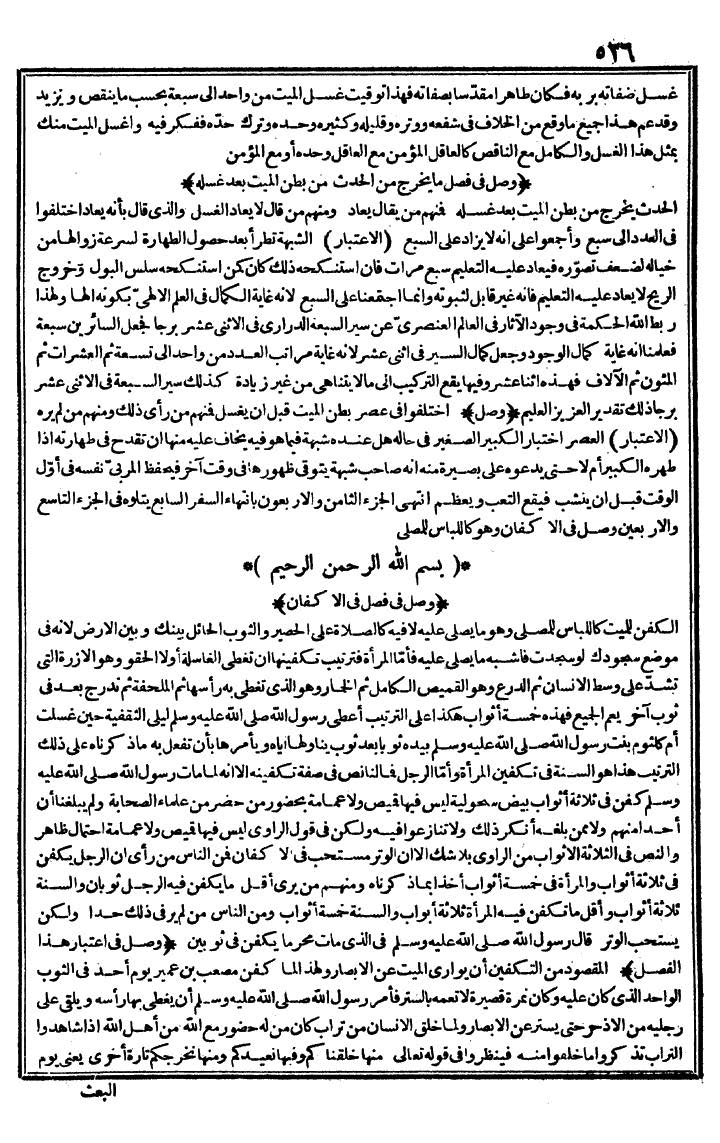 ٥٣٦
غسل صفاته بربه فكان طاهرا مقدسا بصفاته فهذا توقيت غسل الميت من واحد الى سبعة بحسب ما ينقص ويزيد
وقد عم هذا جميع ما وقع من الخلاف فى شفعه ووتره وقليله وكثيره وحده وترك حده ففكر فيه واغسل الميت منك
بمثل هذا الغسل والكامل مع الناقص كالعاقل المؤمن مع العاقل وحده أو مع المؤمن
﴿وصل فى فصل ما يخرج من الحدث من بطن الميت بعد غسله﴾
الحدث يخرج من بطن الميت بعد غسله فنهم من يقال يعاد ومنهم من قال لا يعاد الغسل والذى قال بأنه يعاد اختلفوا
فى العدد الى سبع وأجمعوا على انه لا يزاد على السبع (الاعتبار) الشبهة تطرأ بعد حصول الطهارة لسرعة زوالها من
خياله لضعف تصوّره فيعاد عليه التعليم سبع مرات فان استنكحه ذلك كان كمن استنكحه سلس البول وخروج
الريح لا يعاد عليه التعليم فانه غير قابل لثبوته وانما اجتمعنا على السبع لانه غاية الكمال فى العلم الالهىّ بكونه الها ولهذا
ربط الله الحكمة فى وجود الآثار فى العالم العنصرىّ عن سير السبعة الدرارى فى الاثنى عشر برجا فجعل السائرين سبعة
فعلمنا انه غاية كمال الوجود وجعل كمال السير فى اثنى عشر لانه غاية مراتب العدد من واحد الى تسعة ثم العشرات ثم
المئون ثم الآلاف فهذه اثنا عشر وفيها يقع التركيب الى ما لا يتناهى من غير زيادة كذلك سير السبعة فى الاثنى عشر
برجا ذلك تقدير العزيز العليم ﴿وصل﴾ اختلفوا فى عصر بطن الميت قبل ان يغسل فنهم من رأى ذلك ومنهم من لم يره
(الاعتبار) العصر اختبار الكبير الصغير فى حاله هل عنده شبهة فيما هو فيه يخاف عليه منها ان تقدح فى طهارته اذا
طهره الكبير أم لا حتى يدعوه على بصيرة منه انه صاحب شبهة يتوقى ظهورها فى وقت آخر فيحفظ المربىّ نفسه فى أوّل
الوقت قبل ان ينشب فيقع التعب ويعظم انتهى الجزء الثامن والاربعون بانتهاء السفر السابع يتلوه فى الجزء التاسع
والاربعين وصل فى الاكفان وهو كاللباس للمصلى
*( بسم الله الرحمن الرحيم )*
﴿وصل فى فصل فى الاكفان﴾
الكفن للميت كاللباس للمصلى وهو ما يصلى عليه لا فيه كالصلاة على الحصير والثوب الحائل بينك وبين الارض لانه فى
موضع سجودك لو سجدت فاشبه ما يصلى عليه فأما المرأة فترتيب تكفينها ان تغطى الغاسلة أولا الحقو وهو الازرة التى
تشدّ على وسط الانسان ثم الدرع وهو القميص الكامل ثم الخمار وهو الذى تغطى به رأسها ثم الملحفة ثم تدرج بعد فى
ثوب آخر يعم الجميع فهذه خمسة أثواب هكذا على الترتيب أعطى رسول الله صلى الله عليه وسلم ليلى الثقفية حين غسلت
أم كلثوم بنت رسول الله صلى الله عليه وسلم بيده ثوبا بعد ثوب يناولها اياه ويأمرها بأن تفعل به ما ذكرناه على ذلك
الترتيب هذا هو السنة فى تكفين المرأة وأمّا الرجل فما لنا نص فى صفة تكفينه الا انه لما مات رسول الله صلى الله عليه
وسلم كفن فى ثلاثة أثواب بيض سحولية ليس فيها قميص ولا عمامة بحضور من حضر من علماء الصحابة ولم يبلغنا أن
أحدا منهم ولا ممن بلغه أنكر ذلك ولا تنازعوا فيه ولكن فى قول الراوى ليس فيها قميص ولا عمامة احتمال ظاهر
والنص فى الثلاثة الاثواب من الراوى بلا شك الا ان الوتر مستحب فى الاكفان فن الناس من رأى ان الرجل يكفن
فى ثلاثة أثواب والمرأة فى خمسة أثواب أخذا بما ذكرناه ومنهم من يرى أقل ما يكفن فيه الرجل ثوبان والسنة
ثلاثة أثواب وأقل ما تكفن فيه المرأة ثلاثة أبواب والسنة خمسة أثواب ومن الناس من لم ير فى ذلك حدا ولكن
يستحب الوتر قال رسول الله صلى الله عليه وسلم فى الذى مات محرما يكفن فى ثوبين ﴿وصل فى اعتبار هذا
الفصل﴾ المقصود من التكفين أن يوارى الميت عن الابصار ولهذا لما كفن مصعب بن عمير يوم أحد فى الثوب
الواحد الذى كان عليه وكان نمرة قصيرة لا تعمه بالستر فأمر رسول الله صلى الله عليه وسلم أن يغطى بها رأسه ويلقى على
رجليه من الاذخر حتى يستر عن الابصار ولما خلق الانسان من تراب كان من له حضور مع الله من أهل الله اذا شاهدوا
التراب تذكروا ما خلقوا منه فينظروا فى قوله تعالى منها خلقناكم وفيها نعيدكم ومنها نخرجكم تارة أخرى يعنى يوم
البعث